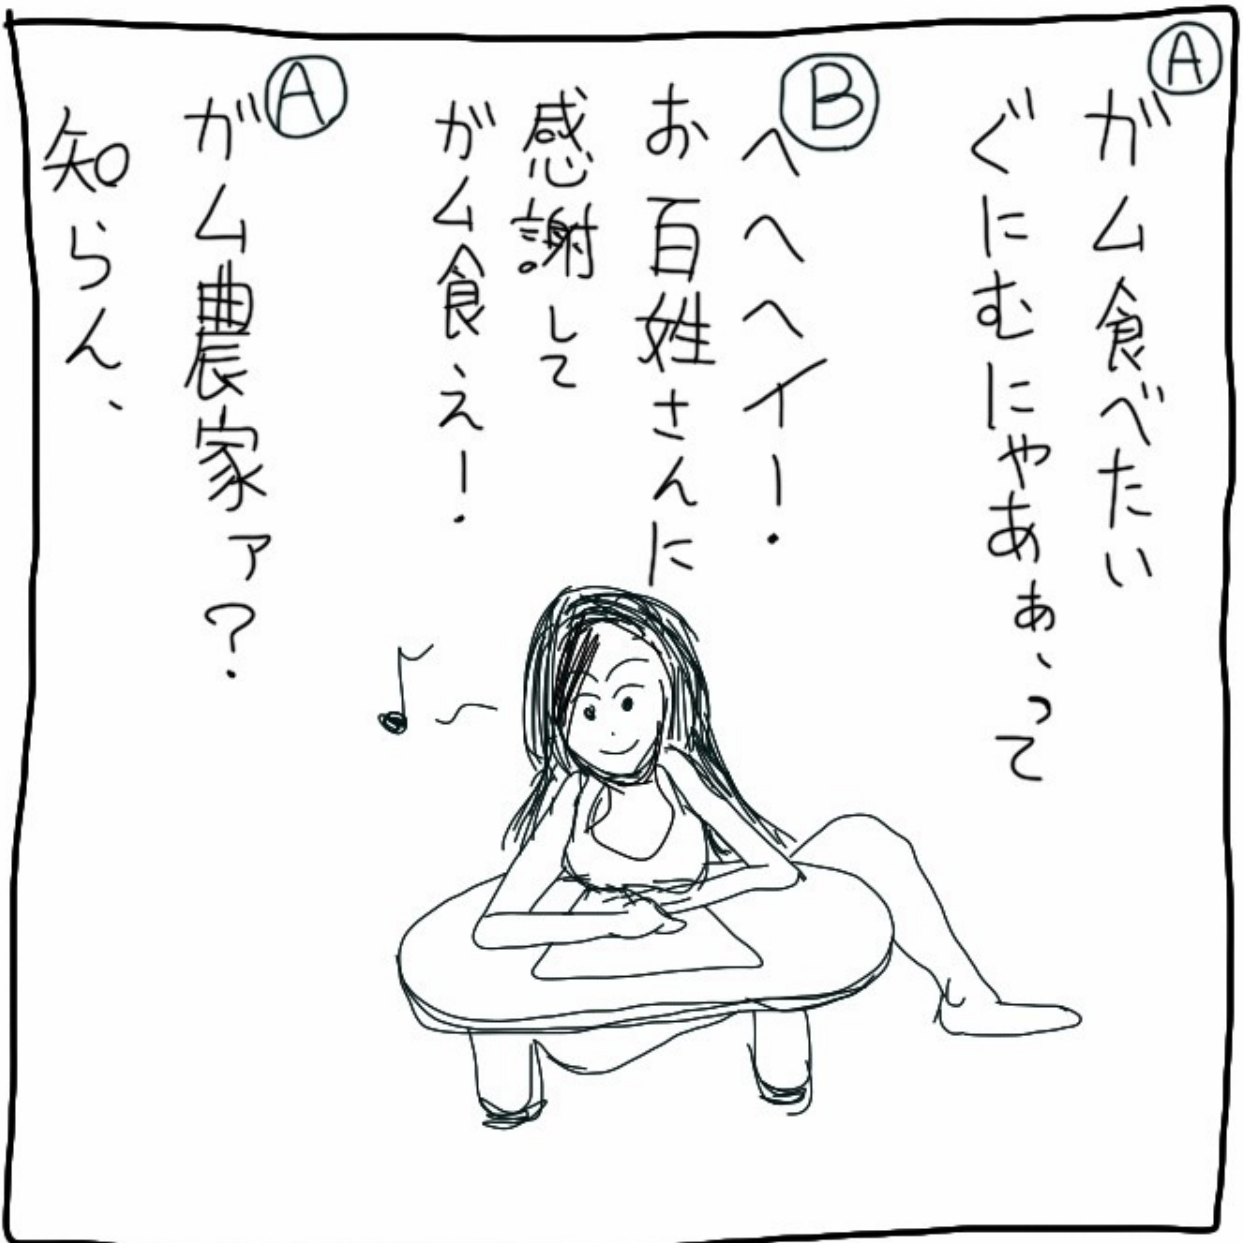 Ⓐ
ガム食べたい
ぐにむにゃあぁ、って
Ⓑ
へへヘイー!
お百姓さんに
感謝して
ガム食え!
Ⓐ
ガム農家ァ?
知らん、